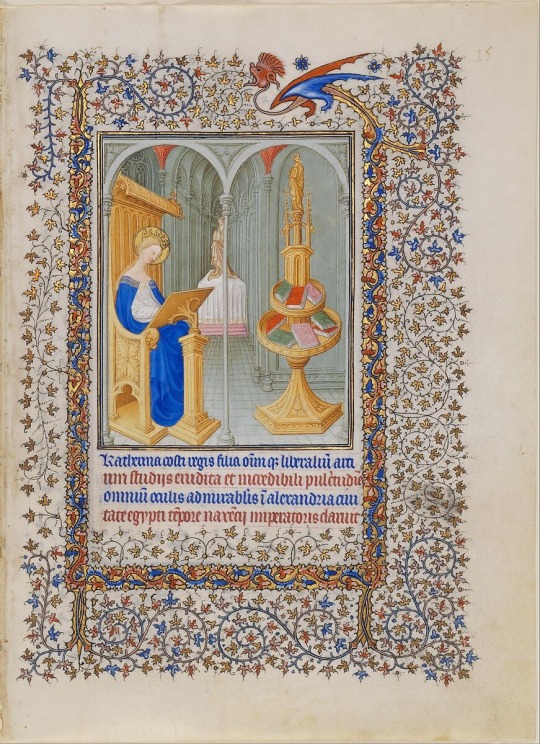 15
Katherina costi regis filia oīm q; liberaliū arti
um studiis erudita et incredibili pulcritudīe
omniū oculis admirabilis ī alexandria ciui
tate egypti tēpore maxēcii imperatoris claruit